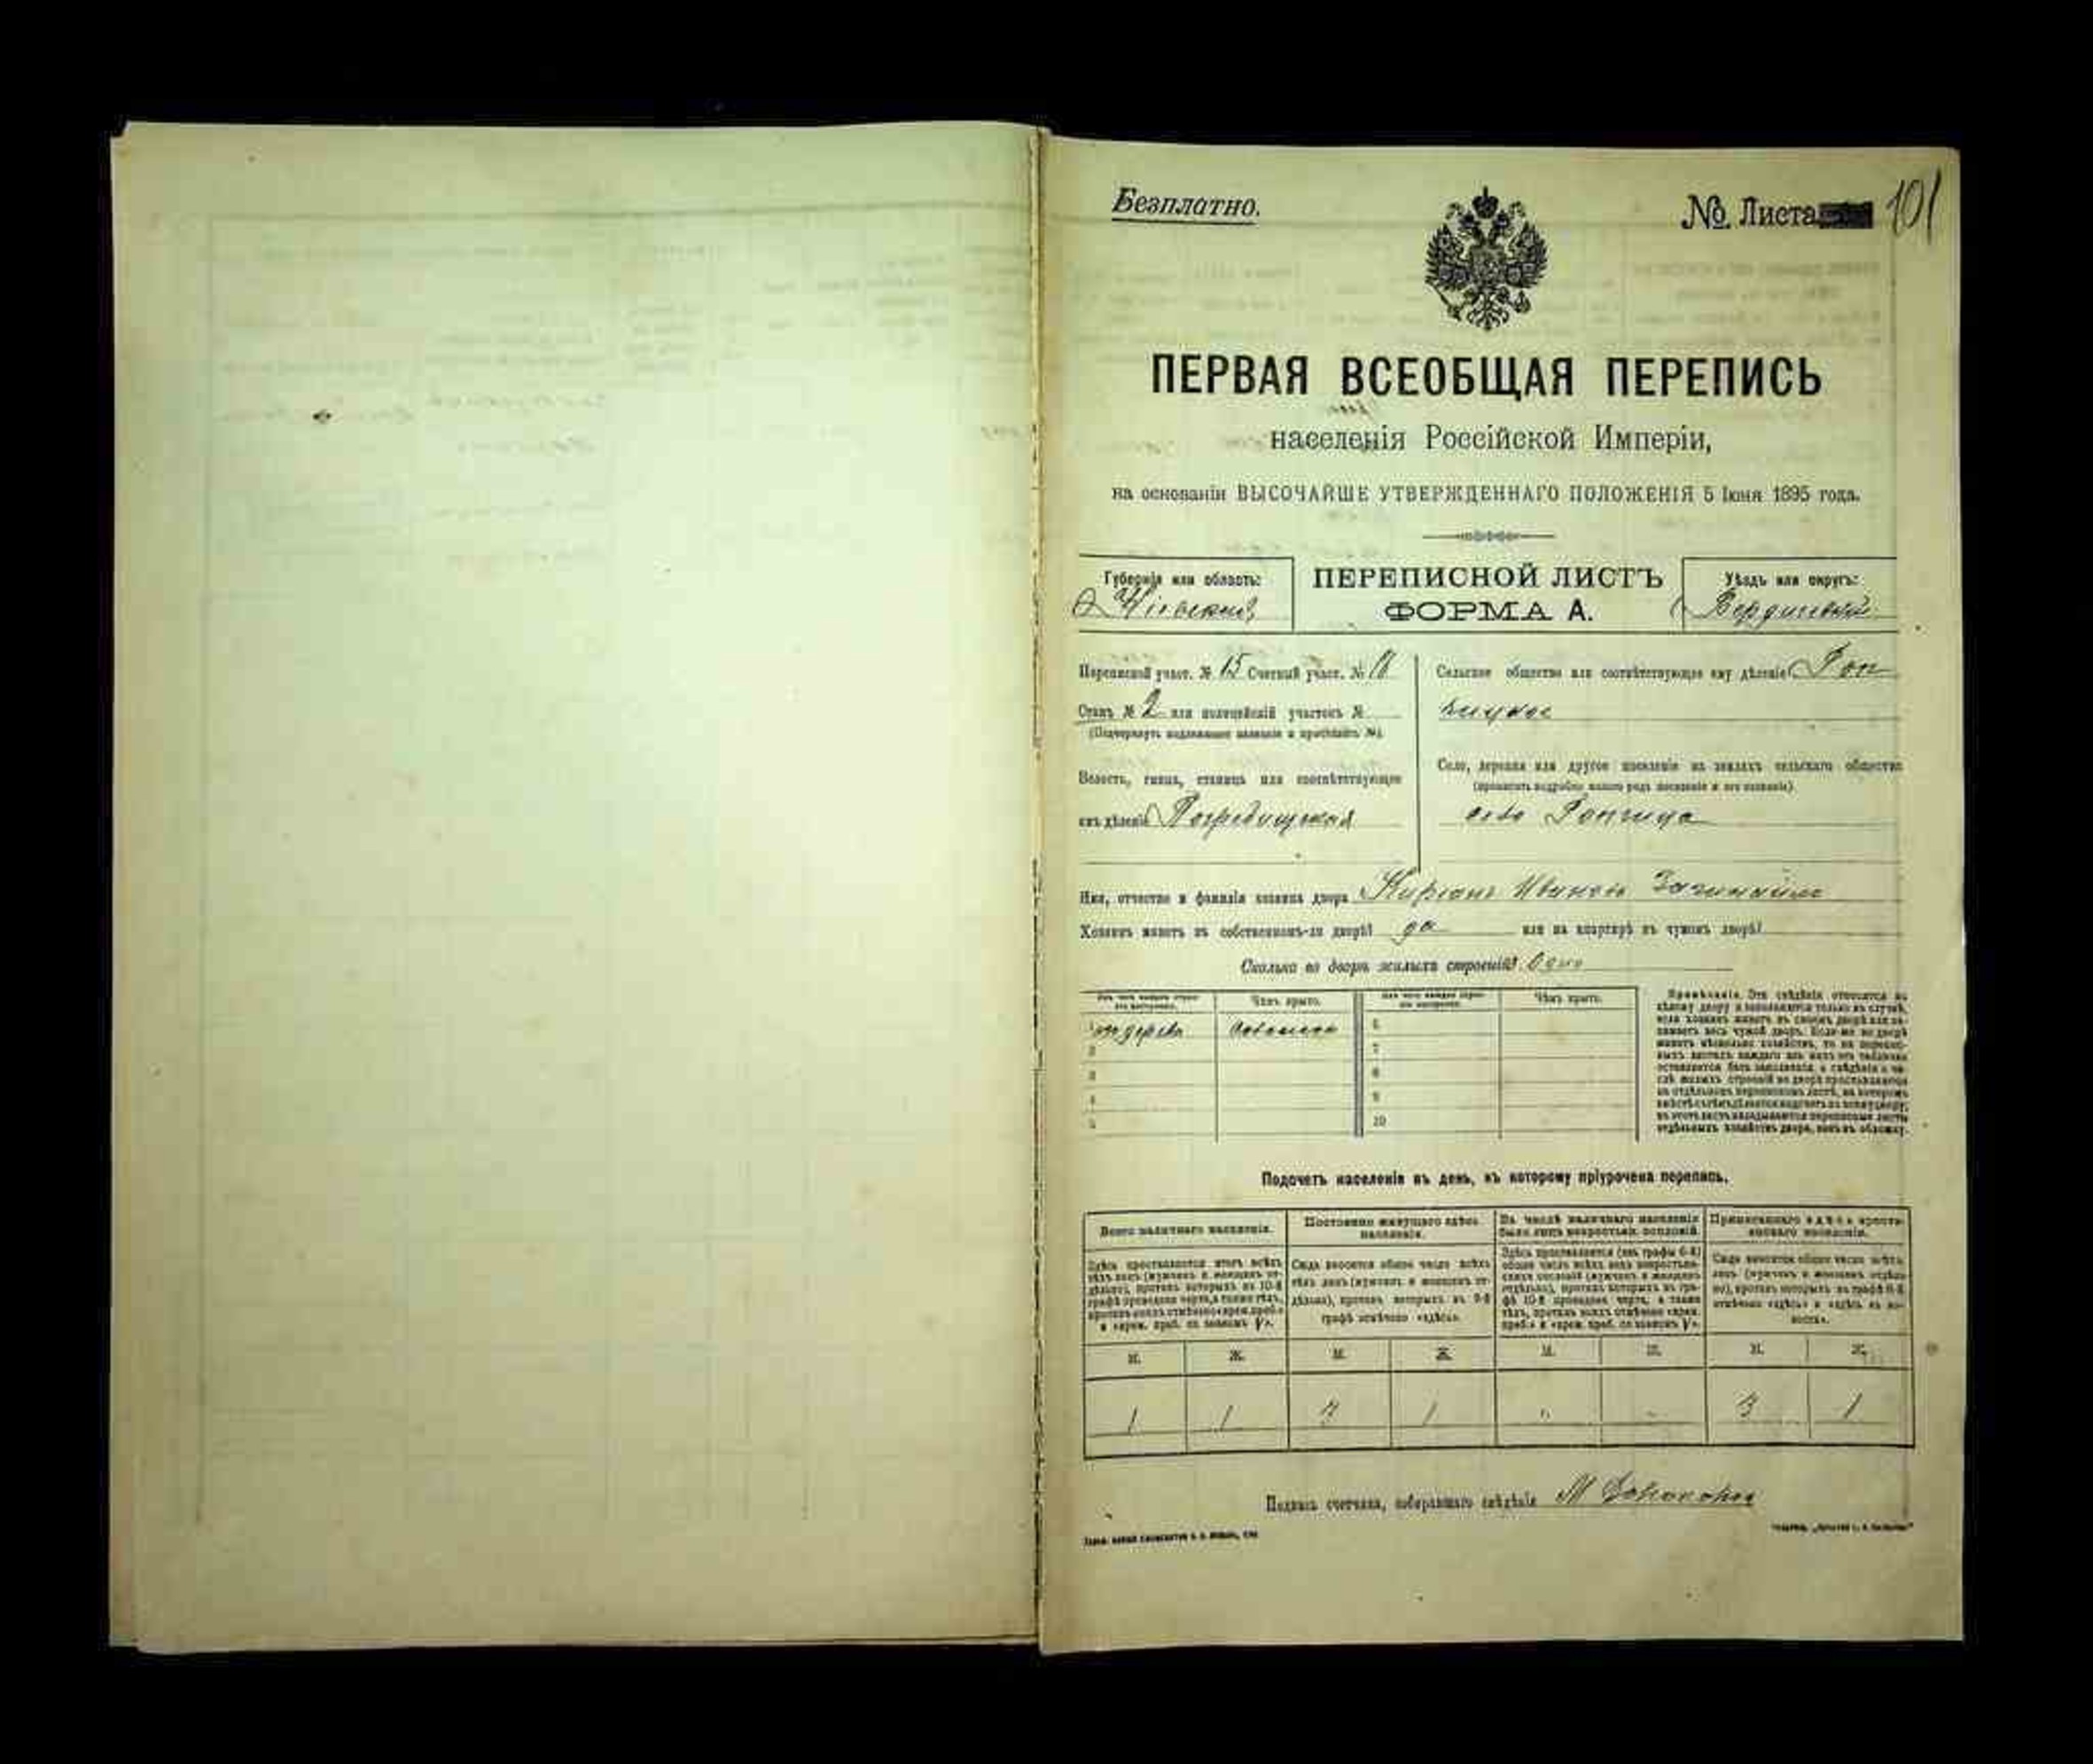 Безплатно.
№ Листа 101
ПЕРВАЯ ВСЕОБЩАЯ ПЕРЕПИСЬ
населенія Россійской Имперіи,
на основаніи ВЫСОЧАЙШЕ УТВЕРЖДЕННАГО ПОЛОЖЕНІЯ 5 Іюня 1895 года.
Губернія или область:
Кіевская
ПЕРЕПИСНОЙ ЛИСТЪ
ФОРМА А.
Уѣздъ или округъ:
Бердичевскій
Переписной участ. № 15 Счетный участ. №
Станъ № 2 или полицейскій участокъ №
(Подчеркнуть надлежащее названіе и проставить №).
Волость, гмина, станица или соотвѣтствующее
имъ дѣленіе Погребищская
Сельское общество или соотвѣтствующее ему дѣленіе
Село, деревня или другое поселеніе на земляхъ сельскаго общества
(прописать подробно какого рода поселеніе и его названіе)
село
Имя, отчество и фамилія хозяина двора Кирьянъ Ивановъ
Хозяинъ живетъ въ собственномъ-ли дворѣ? да или на квартирѣ въ чужомъ дворѣ?
Сколько во дворѣ жилыхъ строеній? Одно
Изъ чего каждое строеніе выстроено.
Чѣмъ крыто.
Изъ чего каждое строеніе выстроено.
Чѣмъ крыто.
1 изъ дерева соломою 6
2 7
3 8
4 9
5 10
Примѣчаніе. Эти свѣдѣнія относятся къ
цѣлому двору и заполняются только въ случаѣ,
если хозяинъ живетъ въ своемъ дворѣ или за-
нимаетъ весь чужой дворъ. Если-же во дворѣ
живетъ нѣсколько хозяйствъ, то на перепис-
ныхъ листахъ каждаго изъ нихъ эта табличка
оставляется безъ заполненія, а свѣдѣнія о чи-
слѣ жилыхъ строеній во дворѣ проставляются
на отдѣльномъ переписномъ листѣ, на которомъ
въ этотъ листъ вкладываются переписные листы
отдѣльныхъ хозяйствъ двора, какъ въ обложку.
Подсчетъ населенія въ день, къ которому пріурочена перепись.
Всего наличнаго населенія.
Постоянно живущаго здѣсь населенія.
Въ числѣ наличнаго населенія было лицъ некрестьян. сословій.
Приписаннаго здѣсь крестьянскаго населенія.
Здѣсь проставляется итогъ всѣхъ
тѣхъ лицъ (мужчинъ и женщинъ от-
дѣльно), противъ которыхъ въ 10-й
графѣ проведена черта, а также тѣхъ,
противъ коихъ отмѣчено «врем. преб.»
и «врем. преб. со знакомъ V».
Сюда вносится общее число всѣхъ
тѣхъ лицъ (мужчинъ и женщинъ от-
дѣльно), противъ которыхъ въ 9-й
графѣ отмѣчено «здѣсь».
Здѣсь проставляется (изъ графы 6-й)
общее число всѣхъ лицъ некрестьян-
скихъ сословій (мужчинъ и женщинъ
отдѣльно), противъ которыхъ въ гра-
фѣ 10-й проведена черта, а также
тѣхъ, противъ коихъ отмѣчено «врем.
преб.» и «врем. преб. со знакомъ V».
Сюда вносится общее число всѣхъ
лицъ (мужчинъ и женщинъ отдѣль-
но), противъ которыхъ въ графѣ 8-й
отмѣчено «здѣсь» и «здѣсь въ во-
лости».
М. Ж. М. Ж. М. Ж. М. Ж.
1 1 3 1 „ - 3 1
Подпись счетчика, собиравшаго свѣдѣнія М